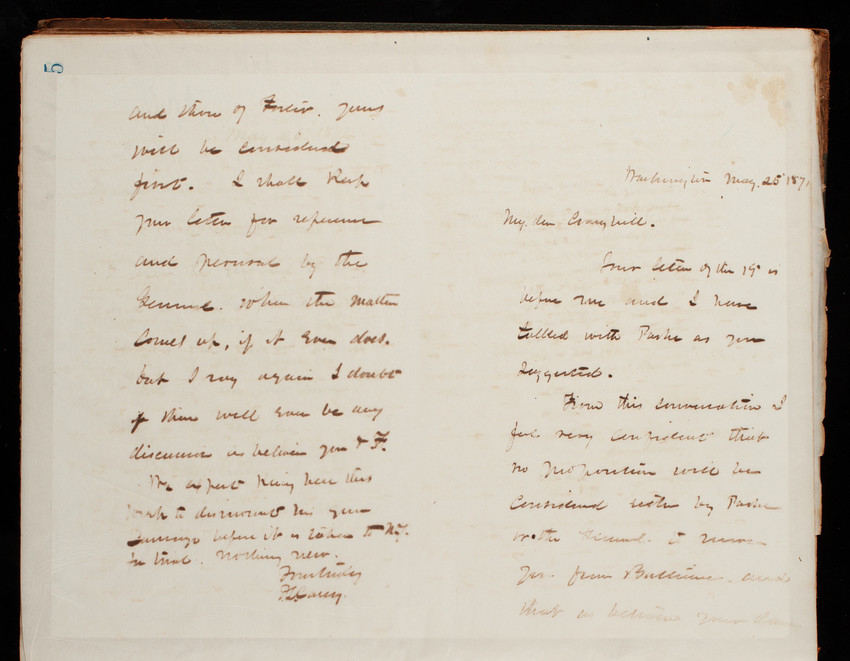 Washington May. 25 1871
My dear Craighill.
Your letter of the 19th is
before me and I have
talked with Parke as you
suggested.
From this conversation I
feel very confident that
no proposition will be
considered either by Parke
or the General. to move
you. from Baltimore. and
that as between your
5
and those of Yours
will be considered
first. I shall keep
your letter for reference
and perusal by the
General. when the matter
comes up, if it ever does.
but I say again I doubt
if there will ever be any
discussion as between you & F.
We expect King here this
week to dismount his gun
carriage before it is taken to N.Y.
for trial. Nothing new.
Yours truly
T.L. Casey.